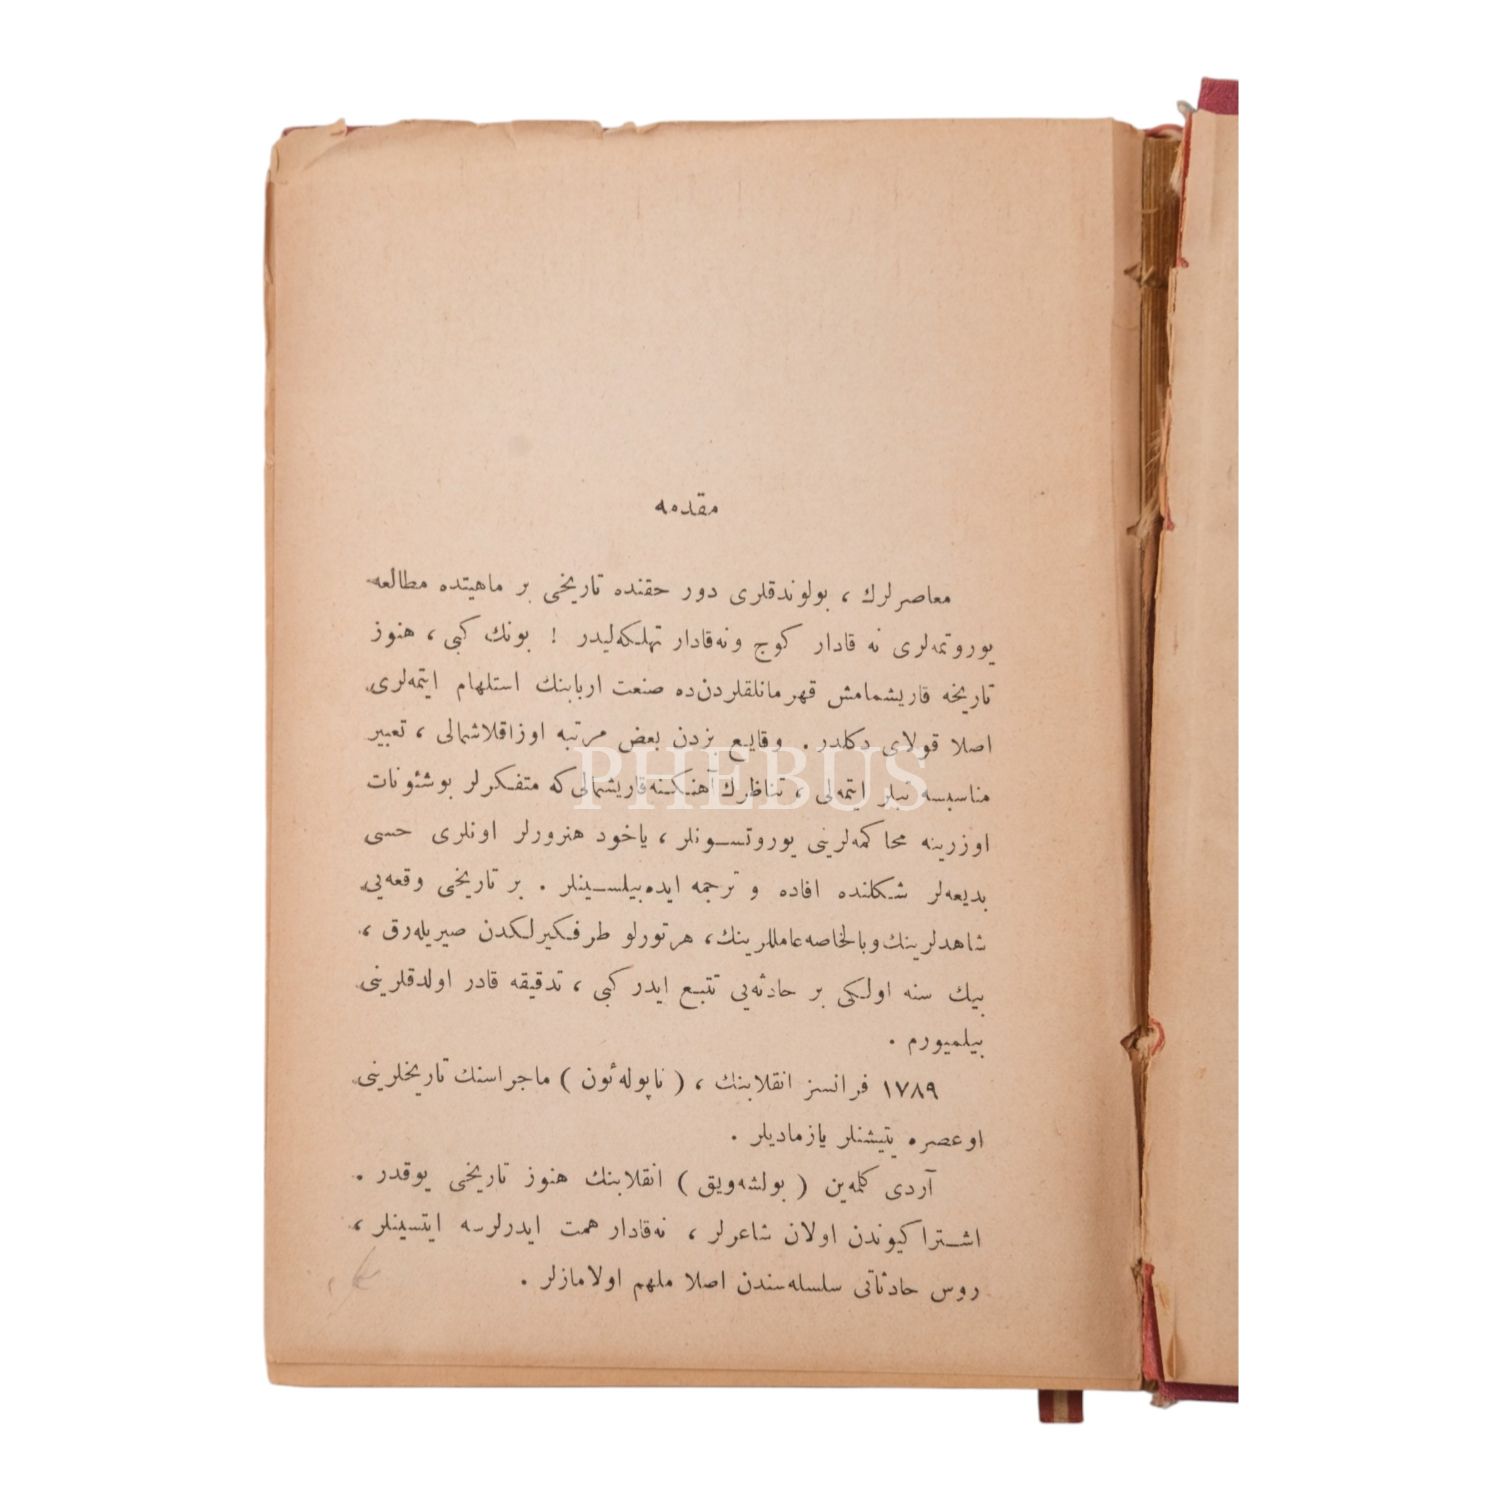 مقدمه
معاصرلرك ، بولوندقلرى دور حقنده تاريخى بر ماهيتده مطالعه
يوروتمه‌لرى نه قادار كوج ونه‌قادار تهلكه‌ليدر ! بونك كبى ، هنوز
تاريخه قاريشمامش قهرمانلقلردن‌ده صنعت اربابنك استلهام ايتمه‌لرى
اصلا قولاى دكلدر . وقايع بزدن بعض مرتبه اوزاقلاشمالى ، تعبير
مناسبسه تبلر ايتمه‌لى ، تناظرك آهنكنه قاريشمالى كه متفكرلر بو شئونات
اوزرينه محاكمه‌لرينى يوروتسونلر ، ياخود هنرورلر اونلرى حسى
بديعه‌لر شكلنده افاده و ترجمه ايده‌بيلسينلر . بر تاريخى وقعه‌يى
شاهدلرينك وبالخاصه عامللرينك ، هرتورلو طرفكيرلكدن صيريله‌رق ،
بيك سنه اولكى بر حادثه‌يى تتبع ايدر كبى ، تدقيقه قادر اولدقلرينى
بيلميورم .
١٧٨٩ فرانسز انقلابنك ، ( ناپوله‌ئون ) ماجراسنك تاريخلرينى
او عصره يتيشنلر يازماديلر .
آردى كلمه‌ين ( بولشه‌ويق ) انقلابنك هنوز تاريخى يوقدر .
اشتراكيوندن اولان شاعرلر ، نه‌قادار همت ايدرلرسه ايتسينلر ،
روس حادثاتى سلسله‌سندن اصلا ملهم اولامازلر .
PHEBUS